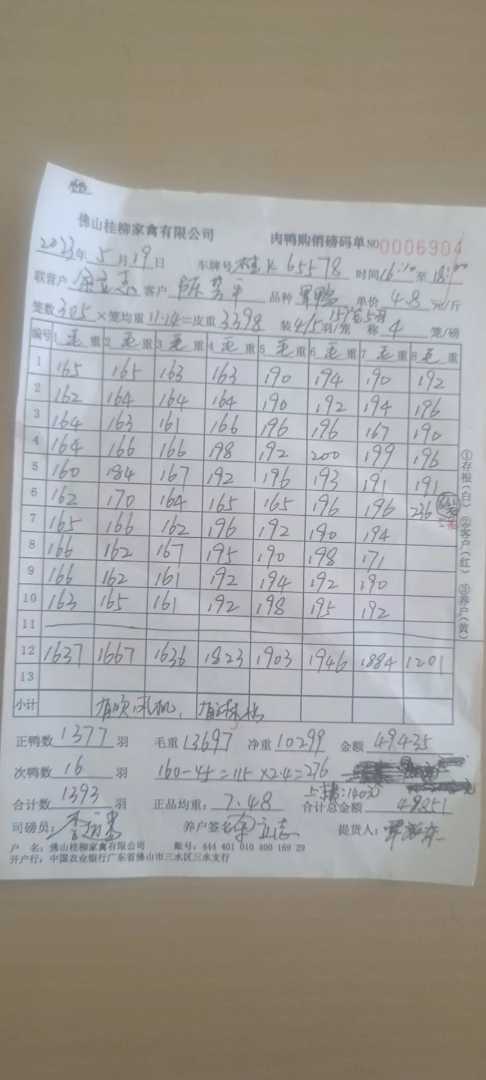 佛山桂柳家禽有限公司 肉鸭购销磅码单 NO 0006904
2023年 5月 19日 车牌号 K65578 时间 16:10 至 18:00
联营户 余立志 客户 品种 单价 4.8 元/斤
笼数 305 ×笼均重 11.14 =皮重 3398 装 4/5 羽/笼 称 4 笼/磅
15笼5羽
编号 1 毛 重 2 毛 重 3 毛 重 4 毛 重 5 毛 重 6 毛 重 7 毛 重 8 毛 重
1 165 165 163 163 190 194 190 192
2 162 164 164 164 190 192 194 196
3 164 163 161 166 196 196 167 190
4 164 166 166 198 192 200 199 196
5 160 184 167 192 196 193 191 191
6 162 170 164 165 165 196 196 236
7 165 166 162 196 192 190 194
8 166 162 167 195 190 198 171
9 166 162 161 192 194 192 190
10 163 165 161 192 198 195 192
11
12 1637 1667 1636 1823 1903 1946 1884 1201
13
小计 有吹风机，
正鸭数 1377 羽 毛重 13697 净重 10299 金额 49435
次鸭数 16 羽 160-45=115×2.4=276
合计数 1393 羽 正品均重： 7.48 合计总金额 49851
司磅员： 养户签名 余立志 提货人：
户 名：佛山桂柳家禽有限公司 账号：444 401 010 400 169 29
开户行：中国农业银行广东省佛山市三水区三水支行
①存根(白) ②客户(红) ③养户(黄)